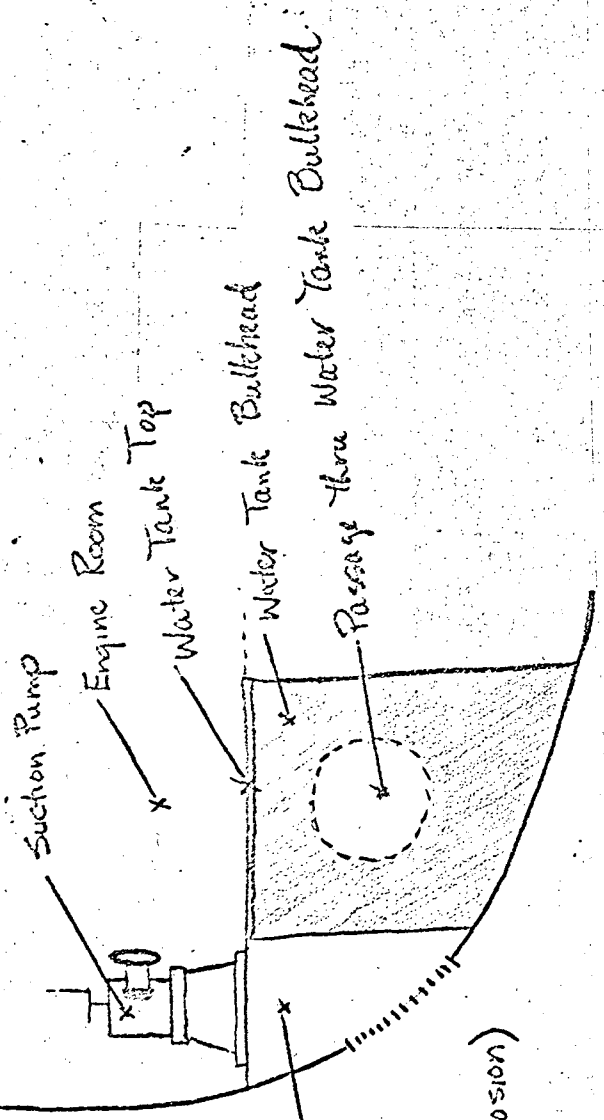 Suction Pump
Engine Room
Water Tank Top
Water Tank Bulkhead
Passage thru Water Tank Bulkhead.
osion)